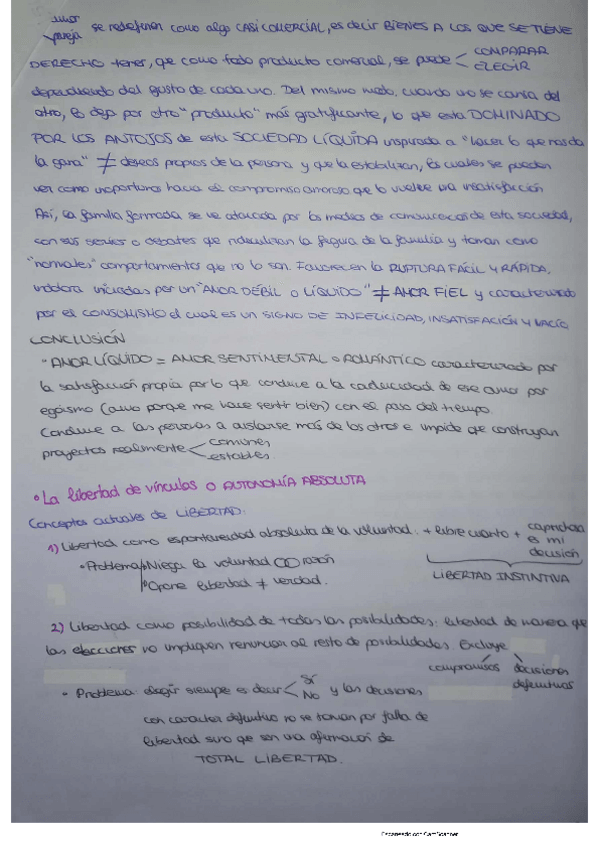 amor
pareja se redefinen como algo CASI COMERCIAL, es decir BIENES A LOS QUE SE TIENE
DERECHO tener, que como todo producto comercial, se puede COMPARAR
ELEGIR
dependiendo del gusto de cada uno. Del mismo modo, cuando uno se cansa del
otro, lo deja por otro "producto" más gratificante, lo que esta DOMINADO
POR LOS ANTOJOS de esta SOCIEDAD LÍQUIDA inspirada a "hacer lo que nos da
la gana" ≠ deseos propios de la persona y que la estabilizan, los cuales se pueden
ver como inoportunos hacia el compromiso amoroso que lo vuelve una insatisfacción
Así, la familia formada se ve atacada por los medios de comunicación de esta sociedad,
con sus series o debates que ridiculizan la figura de la familia y toman como
"normales" comportamientos que no lo son. Favorecen la RUPTURA FÁCIL Y RÁPIDA,
indolora iniciadas por un "AMOR DÉBIL o LÍQUIDO" ≠ AMOR FIEL y caracterizado
por el CONSUMISMO el cual es un SIGNO DE INFELICIDAD, INSATISFACCIÓN Y VACÍO
CONCLUSIÓN
• AMOR LÍQUIDO = AMOR SENTIMENTAL o ROMÁNTICO caracterizado por
la satisfacción propia por lo que conduce a la caducidad de ese amor por
egoísmo (amo porque me hace sentir bien) con el paso del tiempo.
Conduce a las personas a aislarse más de los otros e impide que construyan
proyectos realmente comunes
estables.
• La libertad de vínculos o AUTONOMÍA ABSOLUTA
Conceptos actuales de LIBERTAD:
1) Libertad como espontaneidad absoluta de la voluntad. + libre cuanto + caprichosa
es mi
decisión
• Problema Niega la voluntad razón LIBERTAD INSTINTIVA
Opone libertad ≠ verdad.
2) Libertad como posibilidad de todas las posibilidades: libertad de manera que
las elecciones no impliquen renunciar al resto de posibilidades. Excluye
compromisos decisiones
definitivas
• Problema: elegir siempre es decir SI
NO y las decisiones
con caracter definitivo no se toman por falta de
libertad sino que son una afirmación de
TOTAL LIBERTAD.
Escaneado con CamScanner